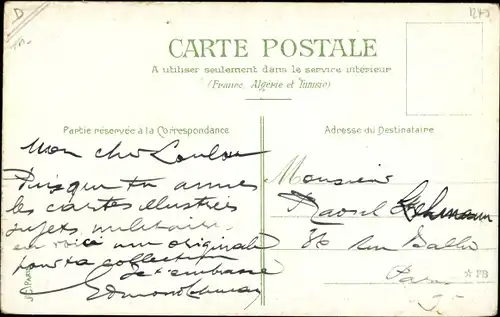 D
1245
CARTE POSTALE
A utiliser seulement dans le service intérieur
(France, Algérie et Tunisie)
Partie réservée à la Correspondance
Adresse du Destinataire
Mon cher Loulou
Puisque tu aimes
les cartes illustrées
sujets militaires
en voici une originale
pour ta collection
Je t'embrasse
Edmond
Monsieur
Raoul Lehmann
86 rue
Paris
☆ PB